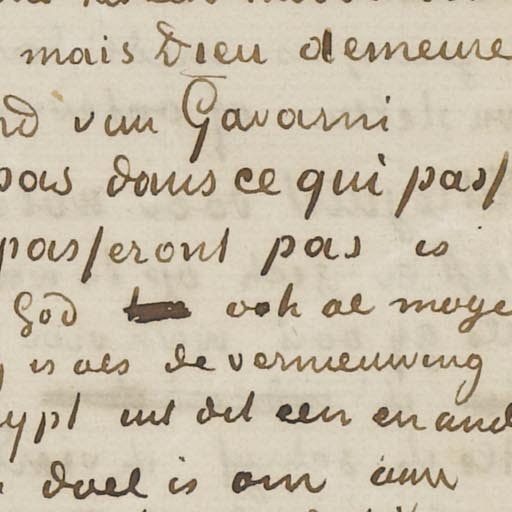 mais Dieu demeure
nd van Gavarni
pas dans ce qui pass
passeront pas is
God ook al moge
is als de vernieuwing
ypt uit dit een en and
doel is om aan